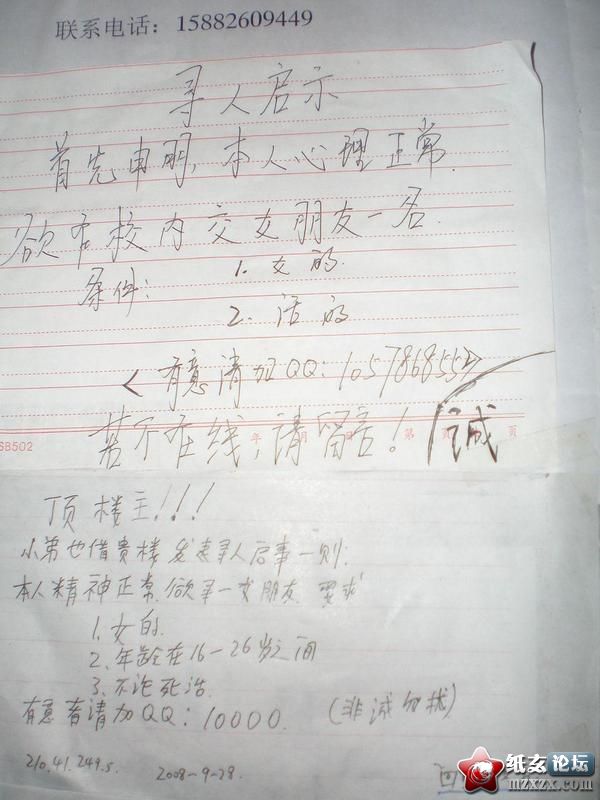 联系电话：15882609449
寻人启示
首先申明，本人心理正常.
欲在校内交女朋友一名.
条件： 1. 女的.
2. 活的
<有意请加QQ：105786855>
若不在线，请留言！ 诚
年 月 第 页
68502
顶楼主！！！
小弟也借贵楼发表寻人启事一则：
本人精神正常.欲寻一女朋友 要求
1. 女的.
2. 年龄在16-26岁之间
3. 不论死活.
有意者请加QQ：10000. (非诚勿扰)
210.41.249.5. 2008-9-28.
回
纸友论坛
mzxzx.com